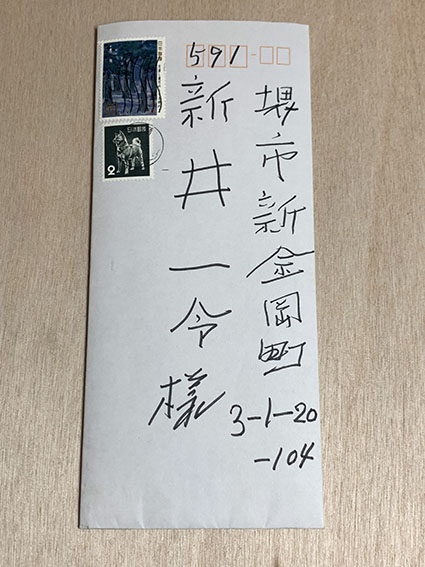 591
堺市新金岡町
3-1-20
-104
新井一令様
日本郵便
2